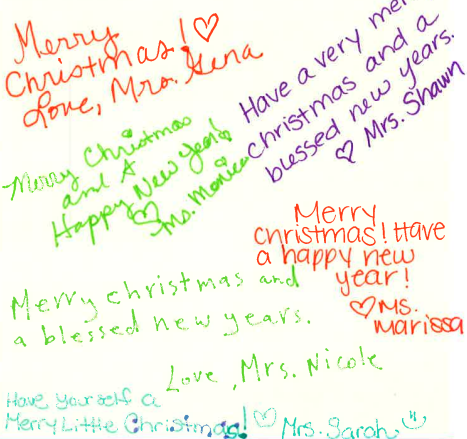 Merry
Christmas! ♡
Love, Mrs. Gena
Have a very mer
christmas and a
blessed new years.
♡ Mrs. Shawn
Merry Christmas
and A
Happy New Year!
♡ Ms. Monica
Merry
christmas! Have
a happy new
year!
♡ Ms.
Marissa
Merry christmas and
a blessed new years.
Love, Mrs. Nicole
Have yourself a
Merry Little Christmas! ♡ Mrs. Sarah